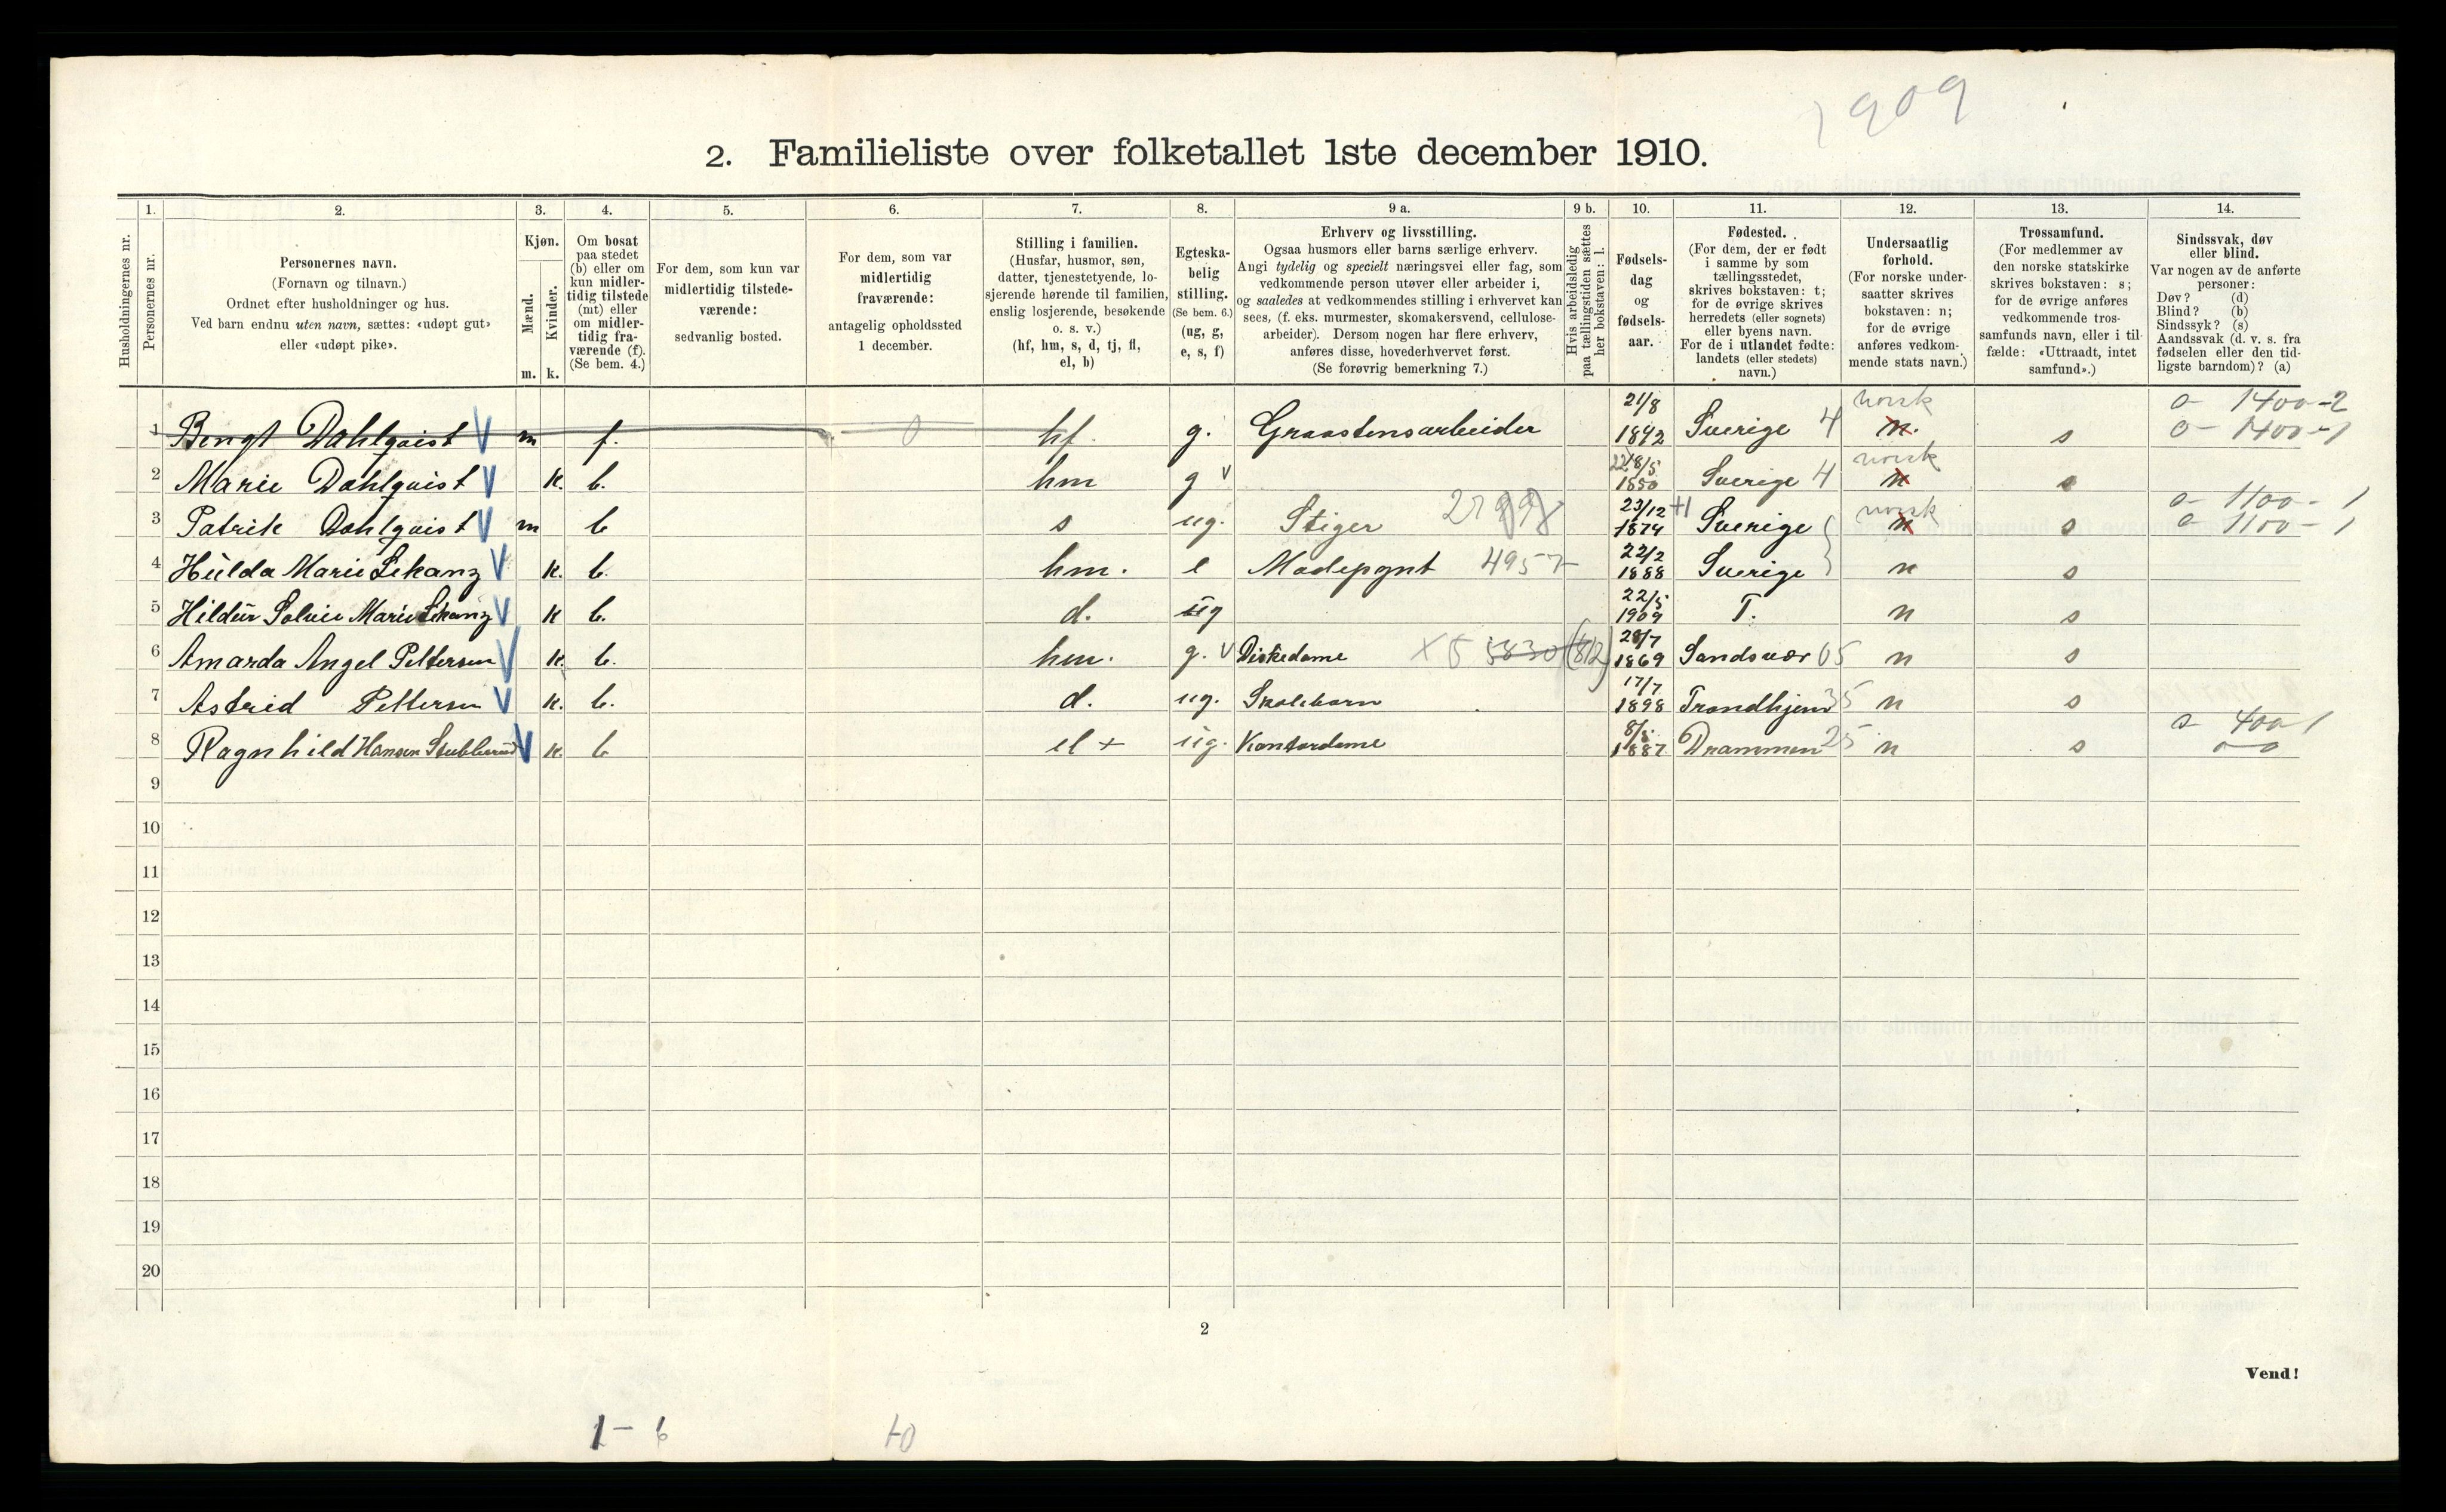 1909
2. Familieliste over folketallet 1ste december 1910.
1. 2. 3. 4. 5. 6. 7. 8. 9 a. 9 b. 10. 11. 12. 13. 14.
Husholdningernes nr.
Personernes nr.
Personernes navn.
(Fornavn og tilnavn.)
Ordnet efter husholdninger og hus.
Ved barn endnu uten navn, sættes: «udøpt gut»
eller «udøpt pike».
Kjøn.
Mænd.
m.
Kvinder.
k.
Om bosat
paa stedet
(b) eller om
kun midler-
tidig tilstede
(mt) eller
om midler-
tidig fra-
værende (f).
(Se bem. 4.)
For dem, som kun var
midlertidig tilstede-
værende:
sedvanlig bosted.
For dem, som var
midlertidig
fraværende:
antagelig opholdssted
1 december.
Stilling i familien.
(Husfar, husmor, søn,
datter, tjenestetyende, lo-
sjerende hørende til familien,
enslig losjerende, besøkende
o. s. v.)
(hf, hm, s, d, tj, fl,
el, b)
Egteska-
belig
stilling.
(Se bem. 6.)
(ug, g,
e, s, f)
Erhverv og livsstilling.
Ogsaa husmors eller barns særlige erhverv.
Angi tydelig og specielt næringsvei eller fag, som
vedkommende person utøver eller arbeider i,
og saaledes at vedkommendes stilling i erhvervet kan
sees, (f. eks. murmester, skomakersvend, cellulose-
arbeider). Dersom nogen har flere erhverv,
anføres disse, hovederhvervet først.
(Se forøvrig bemerkning 7.)
Hvis arbeidsledig
paa tællingstiden sættes
her bokstaven: l.
Fødsels-
dag
og
fødsels-
aar.
Fødested.
(For dem, der er født
i samme by som
tællingsstedet,
skrives bokstaven: t;
for de øvrige skrives
herredets (eller sognets)
eller byens navn.
For de i utlandet fødte:
landets (eller stedets)
navn.)
Undersaatlig
forhold.
(For norske under-
saatter skrives
bokstaven: n;
for de øvrige
anføres vedkom-
mende stats navn.)
Trossamfund.
(For medlemmer av
den norske statskirke
skrives bokstaven: s;
for de øvrige anføres
vedkommende tros-
samfunds navn, eller i til-
fælde: «Uttraadt, intet
samfund».)
Sindssvak, døv
eller blind.
Var nogen av de anførte
personer:
Døv? (d)
Blind? (b)
Sindssyk? (s)
Aandssvak (d. v. s. fra
fødselen eller den tid-
ligste barndom)? (a)
1 Bengt Dahlqvist V m f. 0 hf. g. Graastensarbeider 21/8 1842 Sverige 4 norsk n. s 0 - 1400 - 2 0 - 1400 - 1
2 Marie Dahlqvist V k. b. hm g v 1850 Sverige 4 norsk n s
3 Patrik Dahlqvist V m b s ug. Stiger 23/12 1874 Sverige norsk n s 0 - 1100 - 1 0 1100 - 1
4 Hilda Marie Lekang V k. b. hm. e Madepynt 4957 22/2 1888 Sverige n s
5 Hildur Solvei Marie Lekang V k b. d. ug 22/5 1909 T. n s
6 Amanda Angel Pettersen V k. b. hm. g. v Diskedame X 5 5830 (812) 28/7 1869 Sandsvær 05 n s
7 Astrid Pettersen V k. b. d. ug. Skolebarn 17/7 1898 Trondhjem 35 n s
8 Ragnhild Hansen Stubberud V k. b el + ug. Kontordame 8/5 1887 Drammen 25 n s 0 400 1 0-0
9
10
11
12
13
14
15
16
17
18
19
20
2
Vend!
1 - 6 10